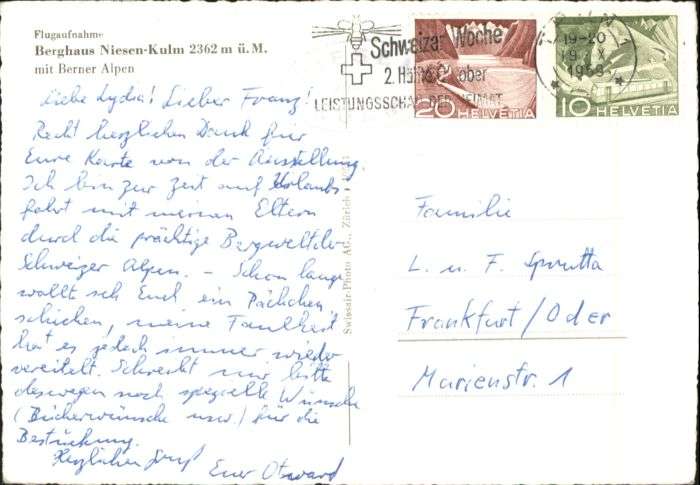 Flugaufnahme
Berghaus Niesen-Kulm 2362 m ü. M.
mit Berner Alpen
Liebe Lydia! Lieber Franz!
Recht herzlichen Dank für
Eure Karte von der Ausstellung.
Ich bin zur Zeit auf Urlaubs-
fahrt mit meinen Eltern
durch die prächtige Bergwelt der
Schweizer Alpen. – Schon lange
wollt ich Euch ein Päckchen
schicken, meine Faulheit
hat es jedoch immer wieder
vereitelt. Schreibt mir bitte
deswegen noch spezielle Wünsche
(Bücherwünsche usw.) für die
Bestückung.
Herzlichen Gruß
Euer
Swissair-Photo AG., Zürich
Schweizer Woche
2. Hälfte Oktober
LEISTUNGSSCHAU DER HEIMAT
20 HELVETIA
19-20
10 HELVETIA
Familie
L. u. F.
Frankfurt/Oder
Marienstr. 1